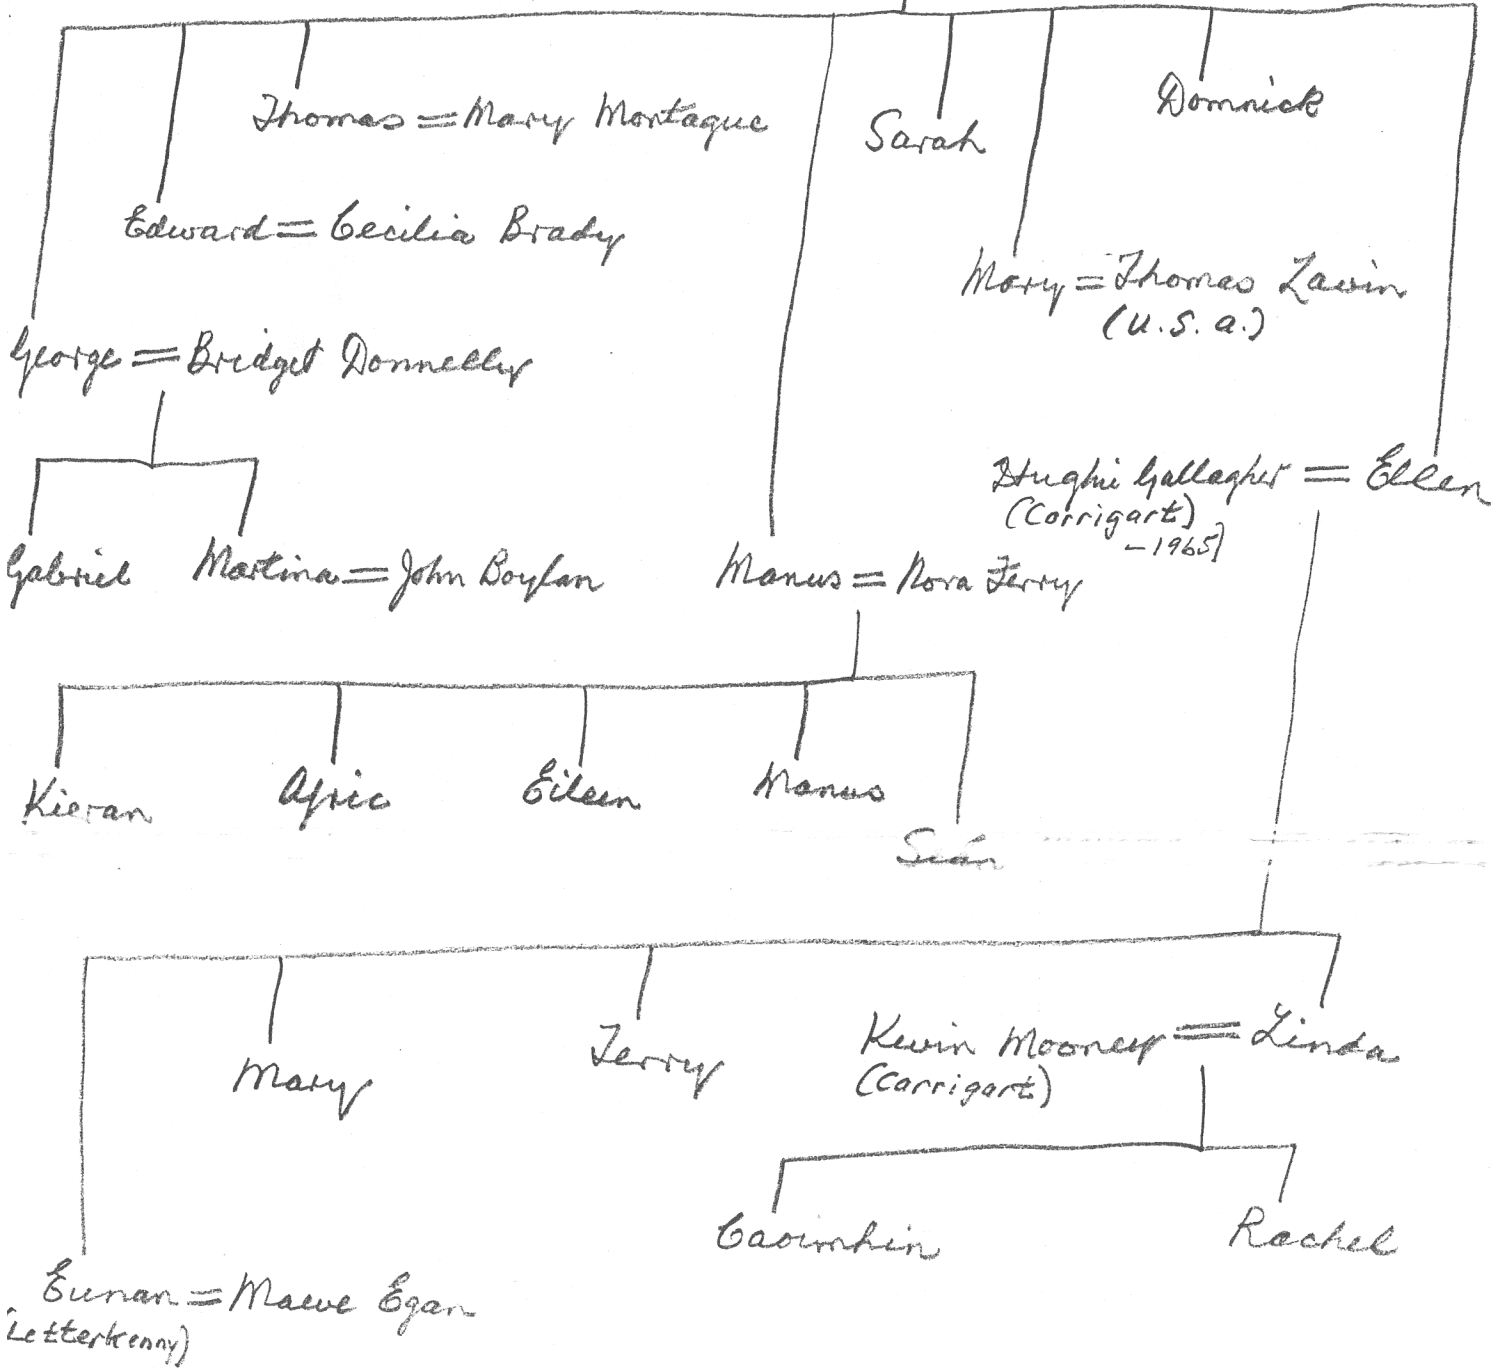 Thomas = Mary Montague
Sarah
Domnick
Edward = Cecilia Brady
Mary = Thomas Lavin
(U.S.A.)
George = Bridget Donnelly
Hughie Gallagher = Ellen
(Corrigart)
-1965)
Gabriel
Martina = John Boylan
Manus = Nora Ferry
Kieran
Afric
Eileen
Manus
Seán
Mary
Terry
Kevin Mooney = Linda
(Carrigart)
Caoimhin
Rachel
Eunan = Maeve Egan
(Letterkenny)